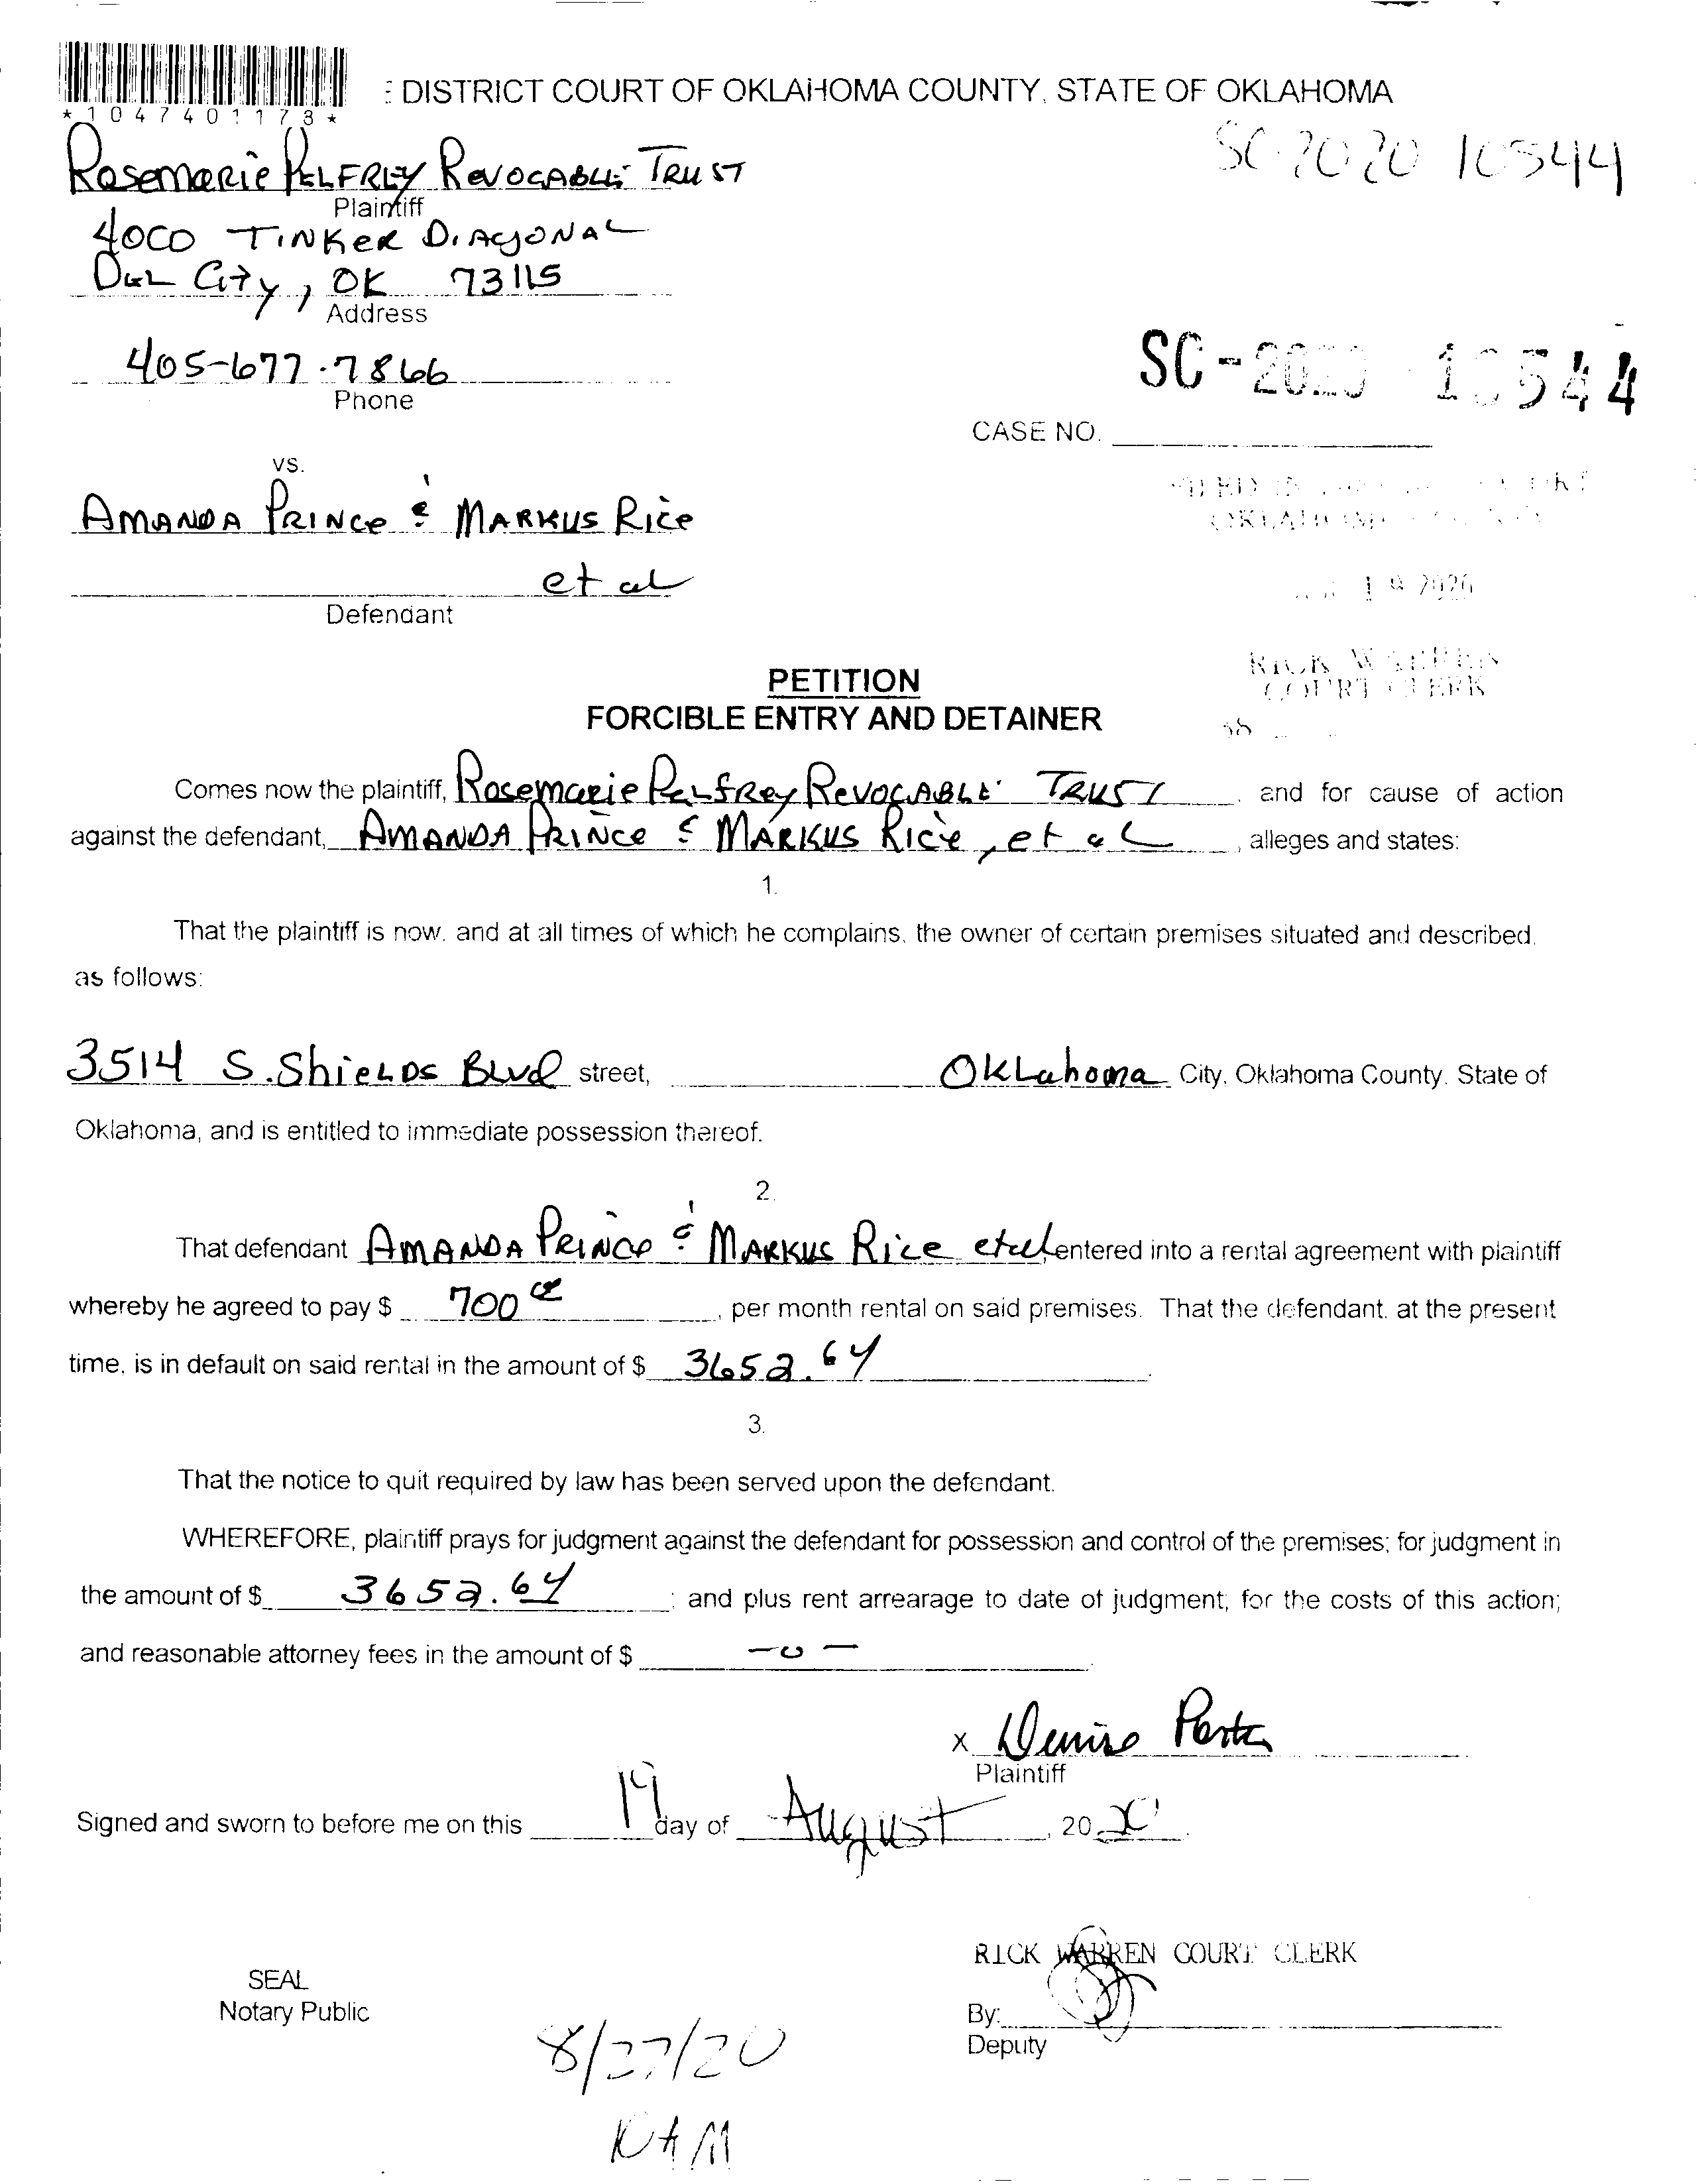 *1047401173*
: DISTRICT COURT OF OKLAHOMA COUNTY, STATE OF OKLAHOMA
SC-2020 10544
Rosemarie Pelfrey Revocable Trust
Plaintiff
4000 Tinker Diagonal
Del City, OK 73115
Address
405-677-7866
Phone
SC-2020 10544
CASE NO.
vs.
Amanda Prince & Markus Rice
et al
Defendant
OKLAHOMA
19 2020
RICK WARREN
COURT CLERK
PETITION
FORCIBLE ENTRY AND DETAINER
Comes now the plaintiff, Rosemarie Pelfrey Revocable Trust and for cause of action
against the defendant, Amanda Prince & Markus Rice, et al, alleges and states:
1.
That the plaintiff is now, and at all times of which he complains, the owner of certain premises situated and described,
as follows:
3514 S. Shields Blvd street, Oklahoma City, Oklahoma County, State of
Oklahoma, and is entitled to immediate possession thereof.
2.
That defendant Amanda Prince & Markus Rice et al, entered into a rental agreement with plaintiff
whereby he agreed to pay $ 700 00, per month rental on said premises. That the defendant, at the present
time, is in default on said rental in the amount of $ 3652.64.
3.
That the notice to quit required by law has been served upon the defendant.
WHEREFORE, plaintiff prays for judgment against the defendant for possession and control of the premises; for judgment in
the amount of $ 3652.64; and plus rent arrearage to date of judgment; for the costs of this action;
and reasonable attorney fees in the amount of $ -0-
x Denise
Plaintiff
Signed and sworn to before me on this 19 day of August, 2020.
RICK WARREN COURT CLERK
SEAL
Notary Public
By:
Deputy
8/27/20